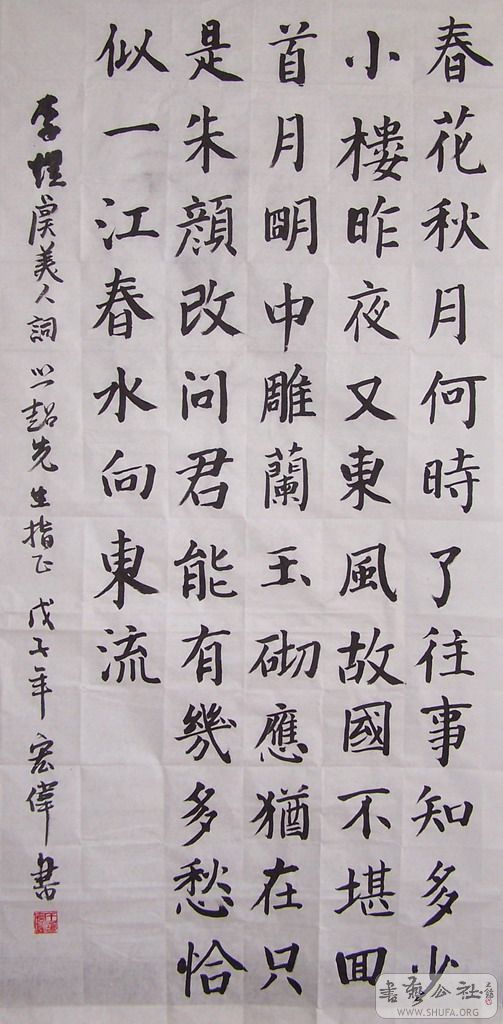 春花秋月何時了往事知多少
小樓昨夜又東風故國不堪回
首月明中雕蘭玉砌應猶在只
是朱顔改問君能有幾多愁恰
似一江春水向東流
李煜虞美人詞 超先生指正 戊子年 宏偉書
書藝公社
WWW.SHUFA.ORG